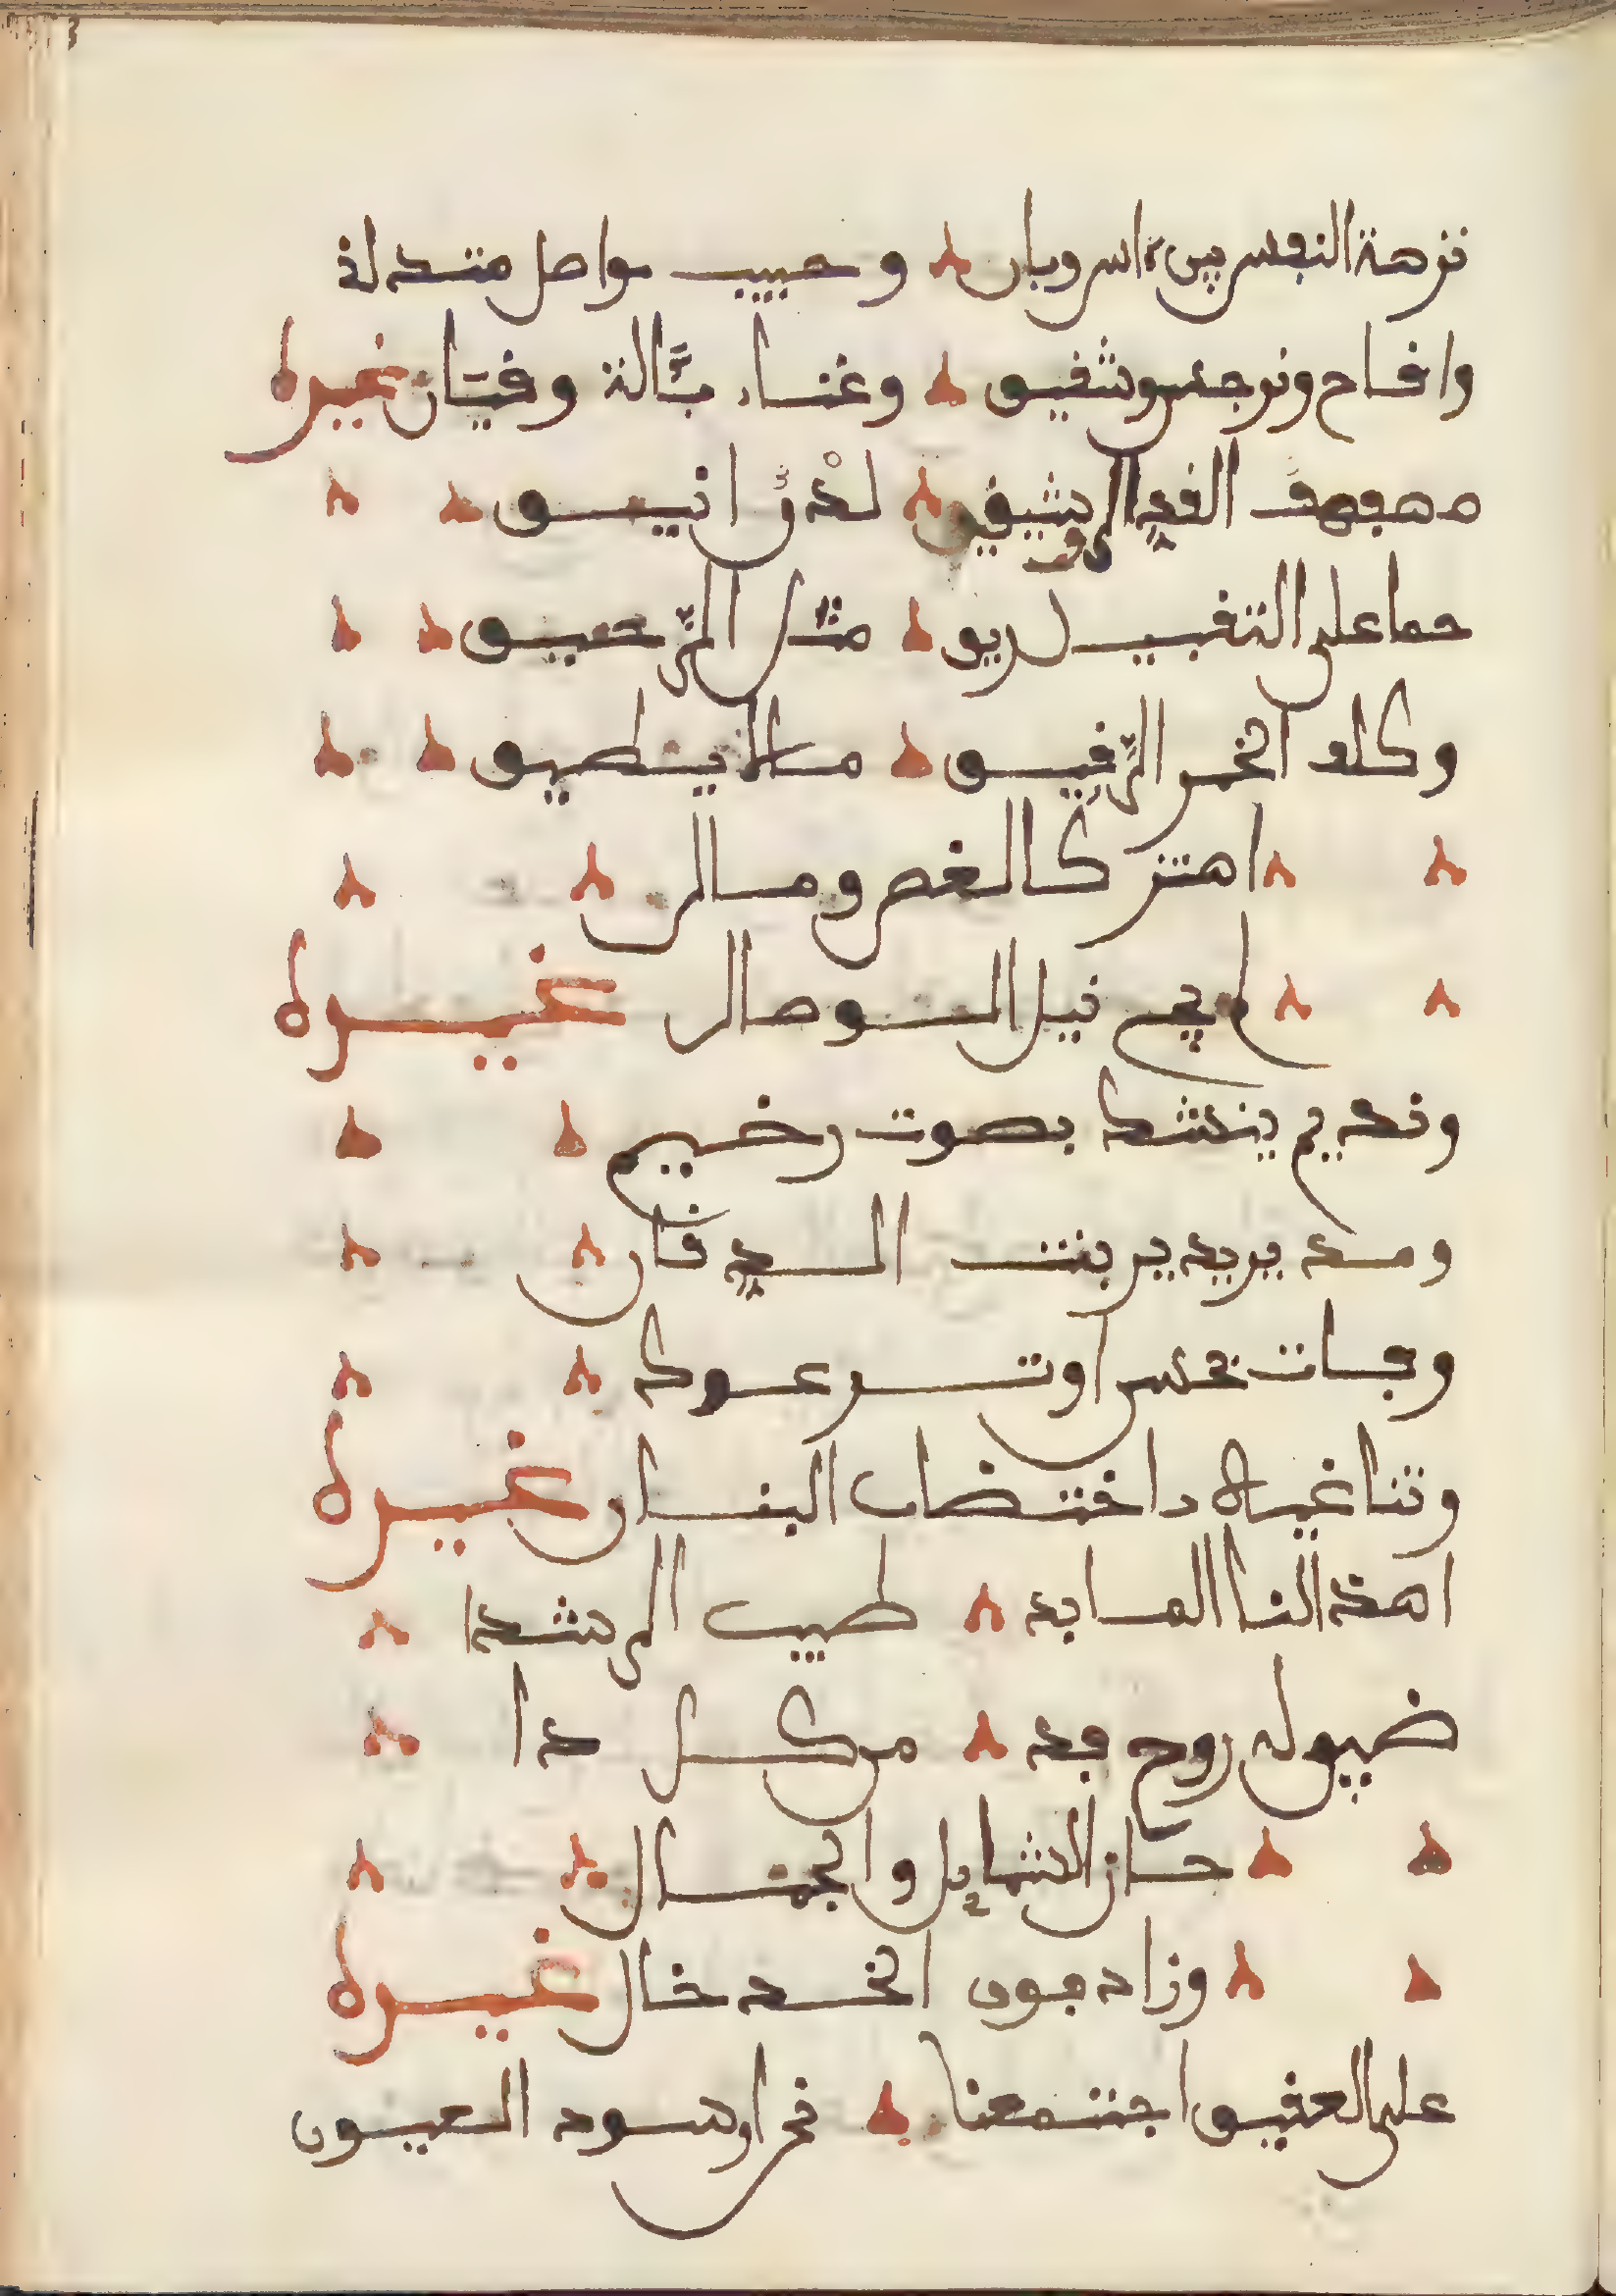 نزهة النفس بين ءاس وبان وحبيب مواصل متدلة
واقاح ونرجس وشقيق وغناء بآلة وقيان غيره
مهفهف القد الرشيق لدن انيق
حماعلى التقبيل ريق مثل الرحيق
وكله الخمر الرقيق مالا يطيق
اهتز كالغصن ومال
نيل الوصال غيره
ونديم ينشد بصوت رخيم
ومدير يدير بنت الدنان
وجات تجس اوتر عود
وتناغيه داختضاب البنان غيره
اهد النا الصابد طيب الشدا
ضبول روح قد من كل دا
حاز الشمايل والجمال
وزاد فوق الخد خال غيره
على العقيق اجتمعنا نحن وسود العيون